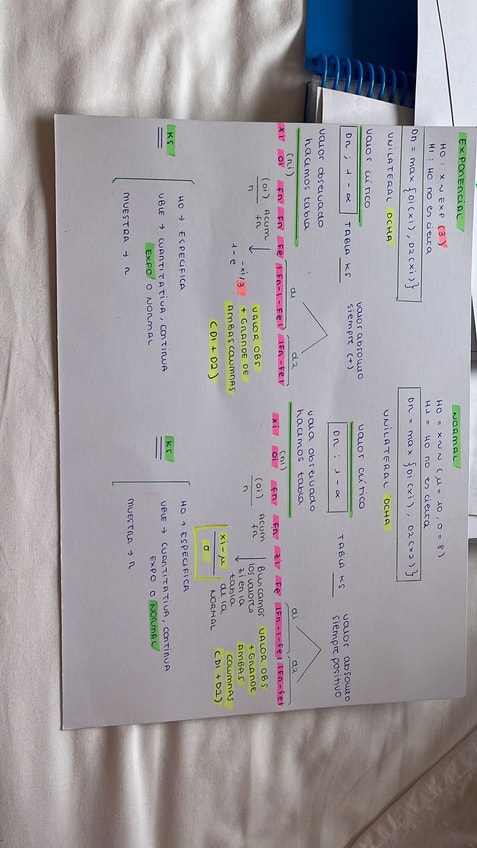 EXPONENCIAL
H0 : X ~ EXP (3)
H1 : H0 no es cierta
Dn = max {D1(xi), D2(xi)}
UNILATERAL DCHA
valor crítico
Dn ; 1 - α TABLA KS
valor observado
hacemos tabla
valor absoluto
siempre (+)
d1 d2
(ni)
xi oi fn Fn Fe |Fn-1-Fe| |Fn-Fe|
(oi) Acum
n fn
1 - e -xi/3
VALOR OBS
+ GRANDE DE
AMBAS COLUMNAS
(D1 + D2)
KS
H0 → ESPECÍFICA
VBLE → CUANTITATIVA, CONTINUA
EXPO O NORMAL
MUESTRA → n
NORMAL
H0 = X ~ N (μ = 10, σ = 8)
H1 = H0 no es cierta
Dn = max {D1(xi), D2(x2)}
UNILATERAL DCHA
valor crítico
Dn : 1 - α TABLA KS
valor observado
hacemos tabla
valor absoluto
siempre positivo
d1 d2
(ni)
xi oi fn Fn zi Fe |Fn-1-Fe| |Fn-Fe|
(oi) Acum
n fn
Buscamos
los valores
zi en la
tabla
de la
NORMAL
xi - μ
σ
VALOR OBS
+ GRANDE
AMBAS
COLUMNAS
(D1 + D2)
KS
H0 → ESPECÍFICA
VBLE → CUANTITATIVA, CONTINUA
EXPO O NORMAL
MUESTRA → n